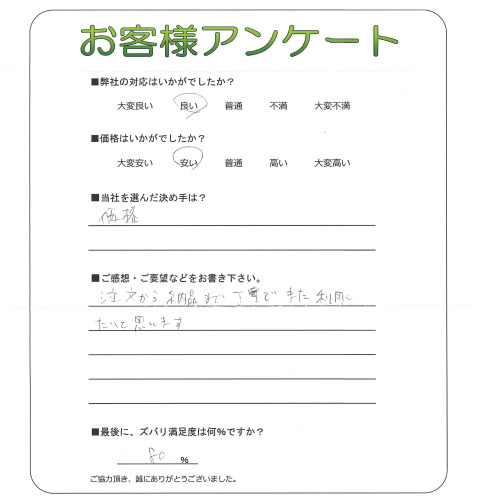 お客様アンケート
■弊社の対応はいかがでしたか？
大変良い　良い　普通　不満　大変不満
■価格はいかがでしたか？
大変安い　安い　普通　高い　大変高い
■当社を選んだ決め手は？
価格
■ご感想・ご要望などをお書き下さい。
注文から納品まで丁寧でまた利用し
たいと思います
■最後に、ズバリ満足度は何%ですか？
80 %
ご協力頂き、誠にありがとうございました。